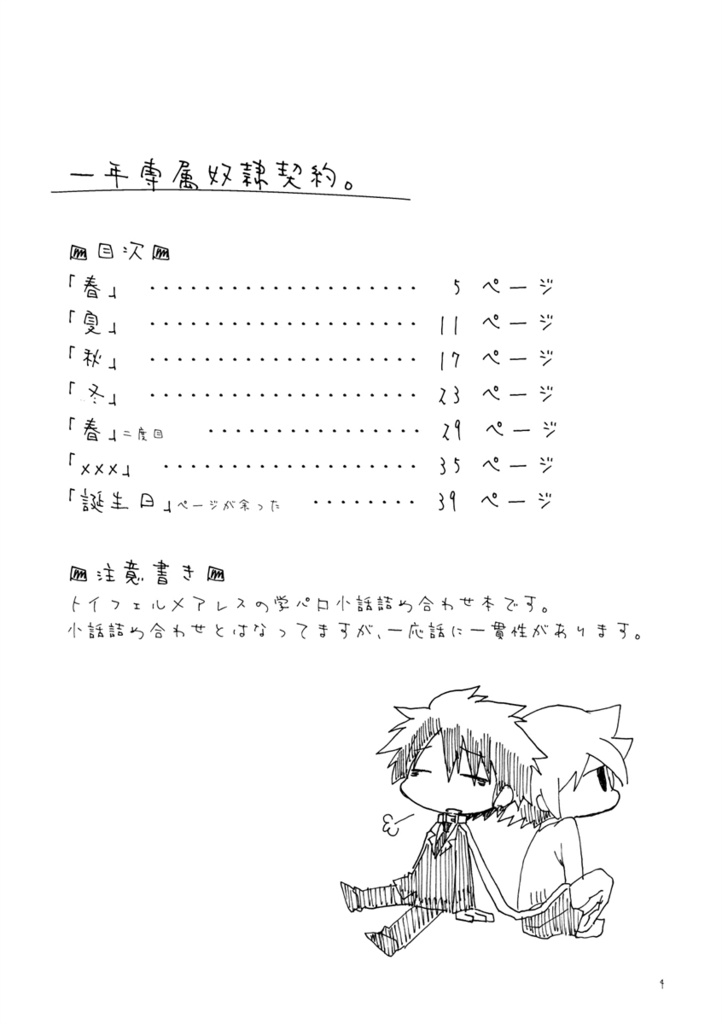 一年専属奴隷契約。
目次
「春」 ・・・・・・・・・・・・・・・・・・・・ 5 ページ
「夏」 ・・・・・・・・・・・・・・・・・・・・ 11 ページ
「秋」 ・・・・・・・・・・・・・・・・・・・・ 17 ページ
「冬」 ・・・・・・・・・・・・・・・・・・・・ 23 ページ
「春」二度目 ・・・・・・・・・・・・・・・・ 29 ページ
「×××」 ・・・・・・・・・・・・・・・・・・・ 35 ページ
「誕生日」ページが余った ・・・・・・・・ 39 ページ
注意書き
トイフェル×アレスの学パロ小話詰め合わせ本です。
小話詰め合わせとはなってますが、一応話に一貫性があります。
4